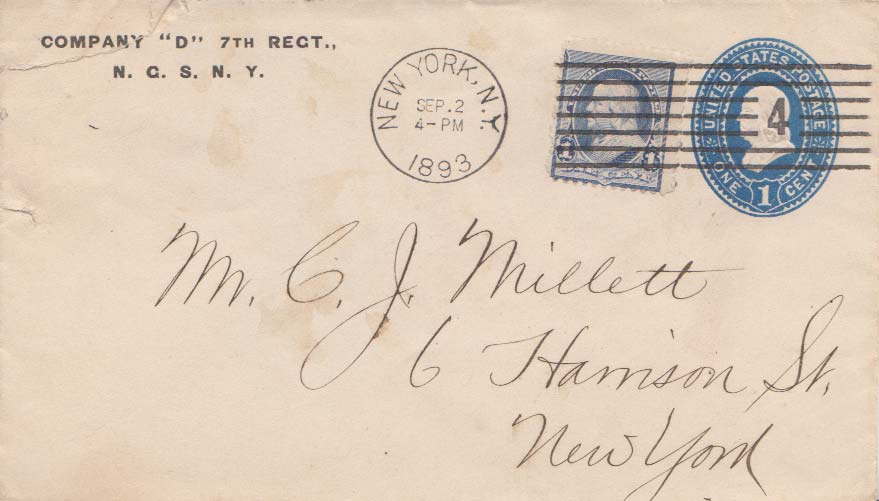 COMPANY "D" 7TH REGT.,
N. G. S. N. Y.
NEW YORK, N.Y.
SEP. 2
4-PM
1893
UNITED STATES POSTAGE
4
ONE 1 CENT
Mr. C. J. Millett
6 Harrison St.
New York